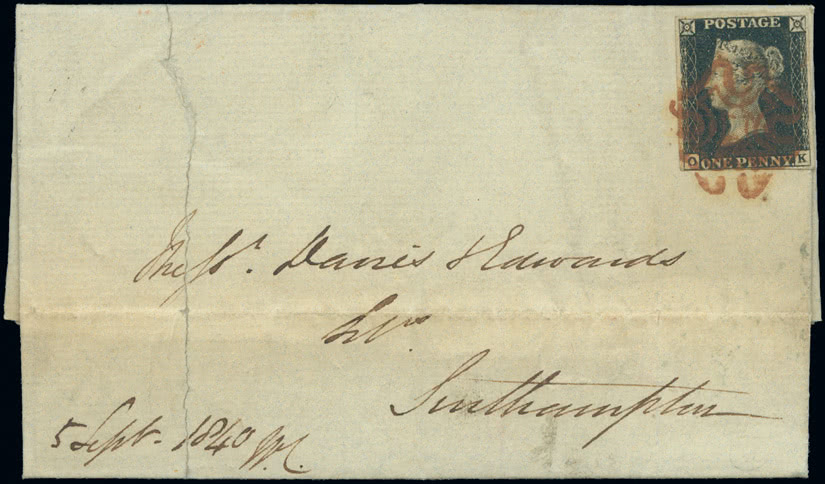 POSTAGE
O ONE PENNY K
Messrs. Davies & Edwards
Southampton
5 Sept. 1840